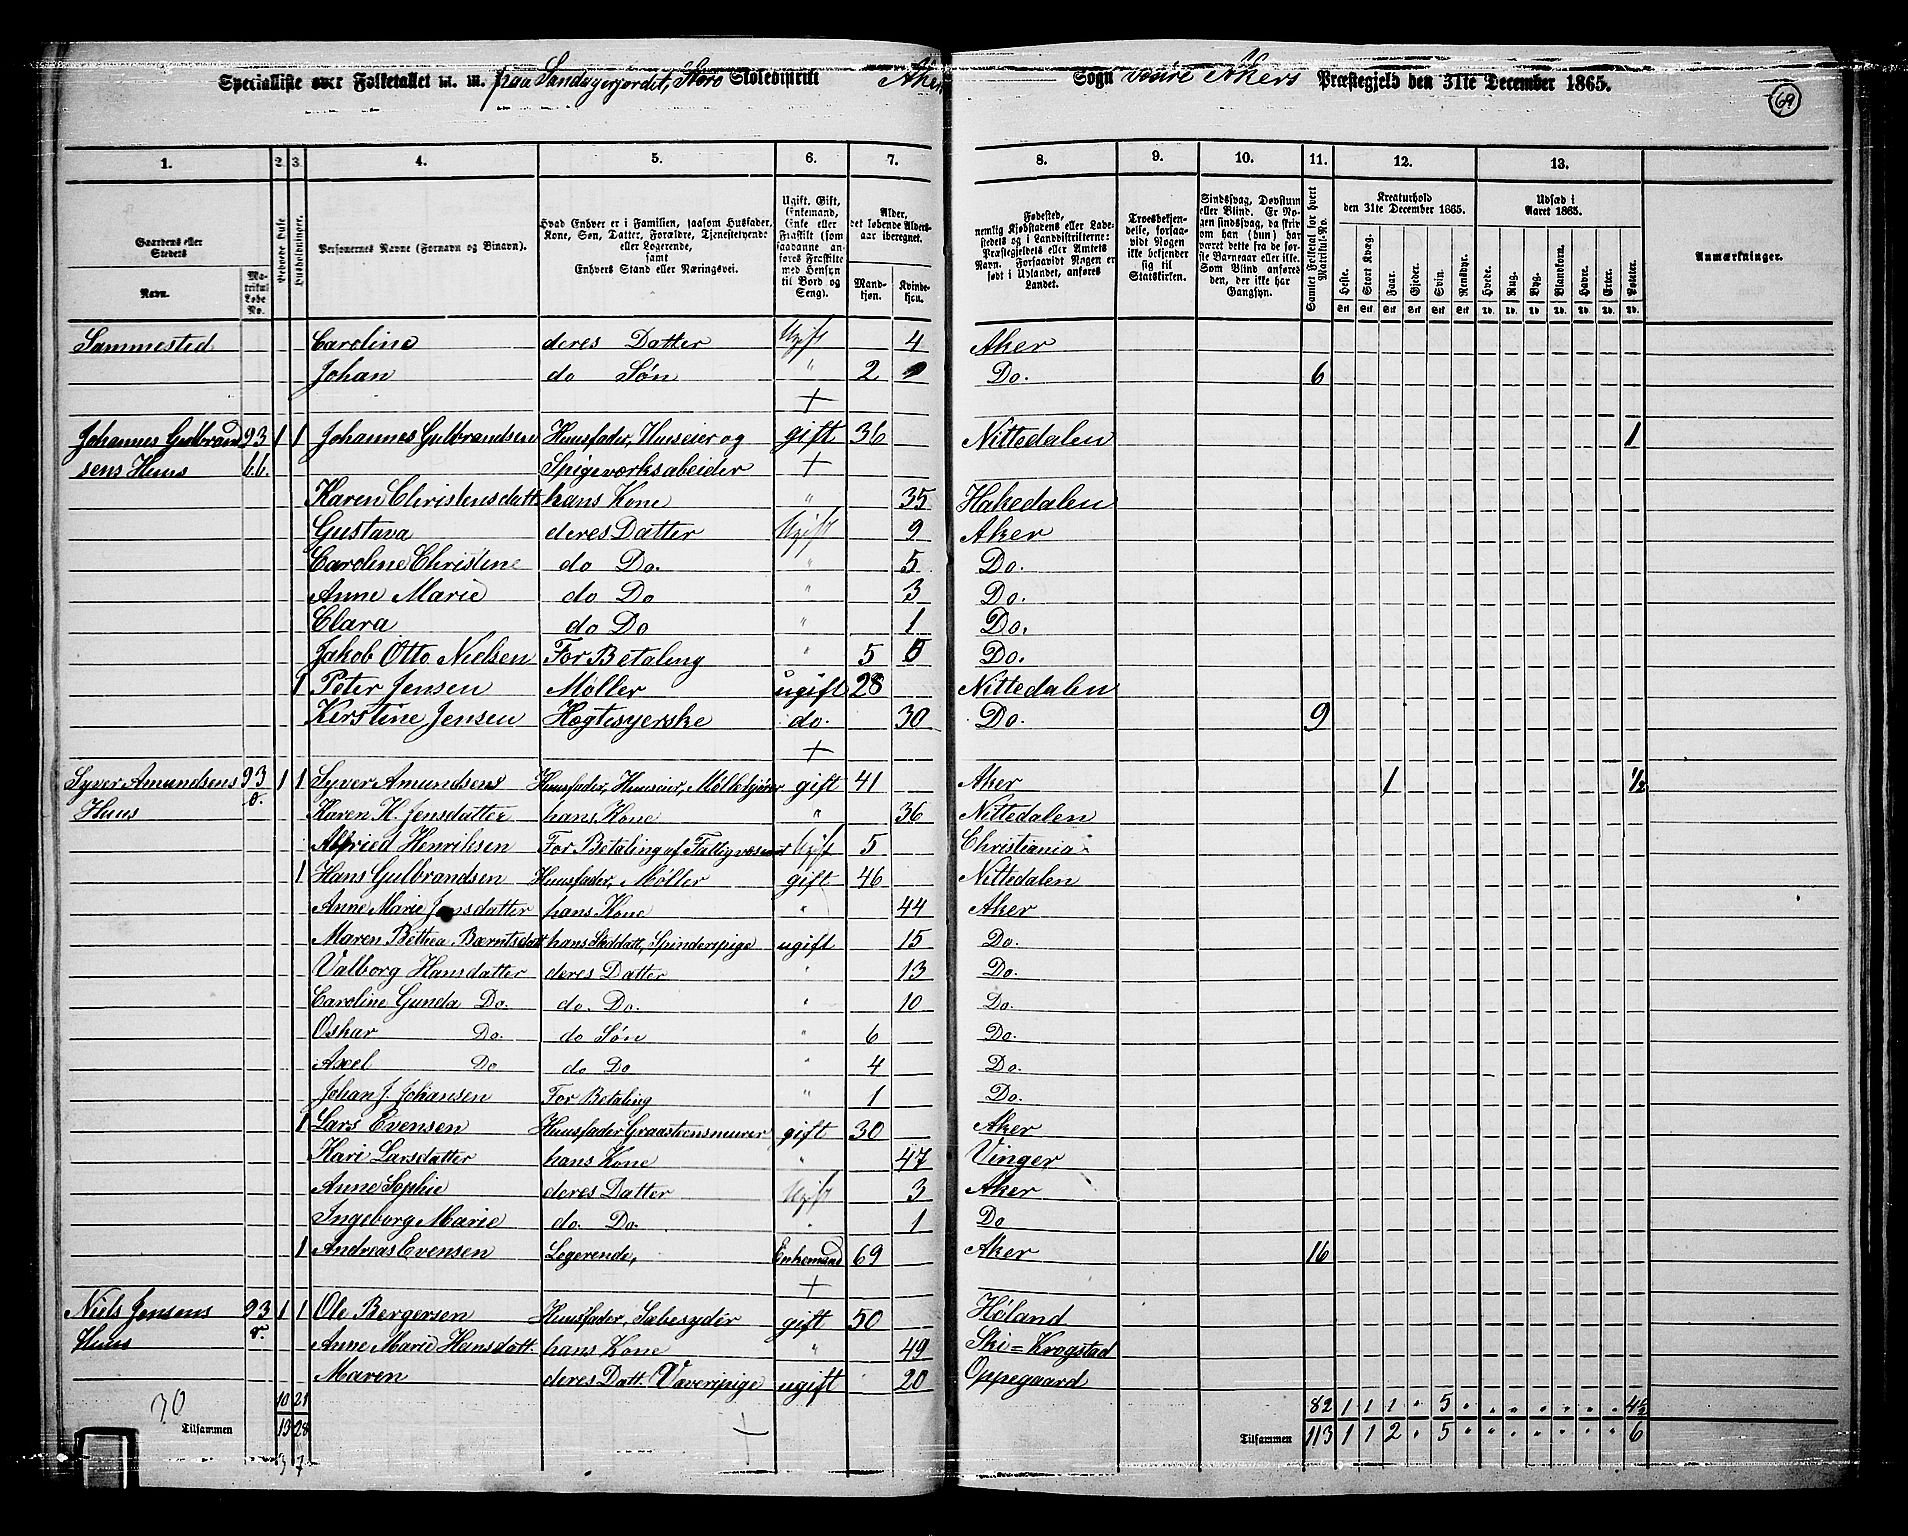 Specialliste over Folketallet m. m. paa Sandagerjordet, Skoledistrikt Aker Sogn Aker's Præstegjeld den 31te December 1865.
69
1. 2. 3. 4. 5. 6. 7. 8. 9. 10. 11. 12. 13.
Gaardens eller Stedets Navn.
Matrikul Løbe No.
Beboede Huse
Husholdninger.
Personernes Navne (Fornavn og Binavn).
Hvad Enhver er i Familien, saasom Husfader, Kone, Søn, Datter, Forældre, Tjenestetyende eller Logerende, samt Enhvers Stand eller Næringsvei.
Ugift, Gift, Enkemand, Enke eller Fraskilt (som saadanne anføres Fraskilte med Hensyn til Bord og Seng).
Alder, det løbende Aldersaar iberegnet.
Mandkjøn. Kvindekjøn.
Fødested, nemlig Kjøbstadens eller Ladestedets og i Landdistrikterne: Præstegjeldets eller Amtets Navn. Forsaavidt Nogen er født i Udlandet, anføres Landet.
Troesbekjendelse, forsaavidt Nogen ikke bekjender sig til Statskirken.
Sindssvag, Døvstum eller Blind. Er Nogen sindssvag, da skriv om han (hun) har været dette fra de første Barneaar eller ikke. Som Blind anføres den, der ikke har Gangsyn.
Samlet Folketal for hvert Matrikul-No.
Kreaturhold den 31te December 1865.
Heste. Stort Kvæg. Faar. Gjeder. Svin. Rensdyr.
Udsæd i Aaret 1865.
Hvede. Rug. Byg. Blandkorn. Havre. Erter. Poteter.
Anmærkninger.
Sammested Caroline deres Datter Ugift 4 Aker
Johan do Søn " 2 Do. 6
Johannes Gulbrand 93 1 1 Johannes Gulbrandsen Huusfader, Huuseier og gift 36 Nittedalen 1
sens Huus Spigeværksabeider
Karen Christensdatt. hans Kone " 35 Hakedalen
Gustava deres Datter Ugift 9 Aker
Caroline Christine do Do. " 5 Do.
Anne Marie do Do " 3 Do.
Clara do Do " 1 Do.
Jakob Otto Nielsen For Betaling " 5 Do.
1 Peter Jensen Møller ugift 28 Nittedalen
Kirstine Jensen Hægtesyerske do. 30 Do. 9
Syver Amundsens 93 1 1 Syver Amundsens Huusfader, Huuseier, gift 41 Aker 1 1/2
Huus Karen K. Jensdatter hans Kone " 36 Nittedalen
Alfried Henriksen For Betaling af Fattigvæsenet Ugift 5 Christiania
1 Hans Gulbrandsen Huusfader, Møller gift 46 Nittedalen
Anne Marie Jensdatter hans Kone " 44 Aker
Maren Bethea Bærntsdatt hans Steddatt, Spinderipige ugift 15 Do.
Valborg Hansdatter deres Datter " 13 Do.
Caroline Gunda Do. do. Do. " 10 Do.
Oskar Do. do Søn " 6 Do.
Axel Do do Do " 4 Do.
Johan J. Johansen For Betaling " 1 Do.
1 Lars Evensen Huusfader Graasteensmurer gift 30 Aker
Kari Larsdatter hans Kone " 47 Vinger
Anne Sophie deres Datter Ugift 3 Aker
Ingeborg Marie do. Do. " 1 Do
1 Andreas Evensen Logerende, Enkemand 69 Aker 16
Niels Jensens 93 1 1 Ole Bergersen Huusfader, Sæbesyder gift 50 Høland
Huus Anne Marie Hansdatt. hans Kone " 49 Ski=Krogstad
Maren deres Datt. Væveripige ugift 20 Oppegaard
10 21 82 1 1 1 " 5 " " " " " " " 4 1/2
30 Tilsammen 13 28 Tilsammen 113 1 1 2 " 5 " " " " " " " 6
3 7